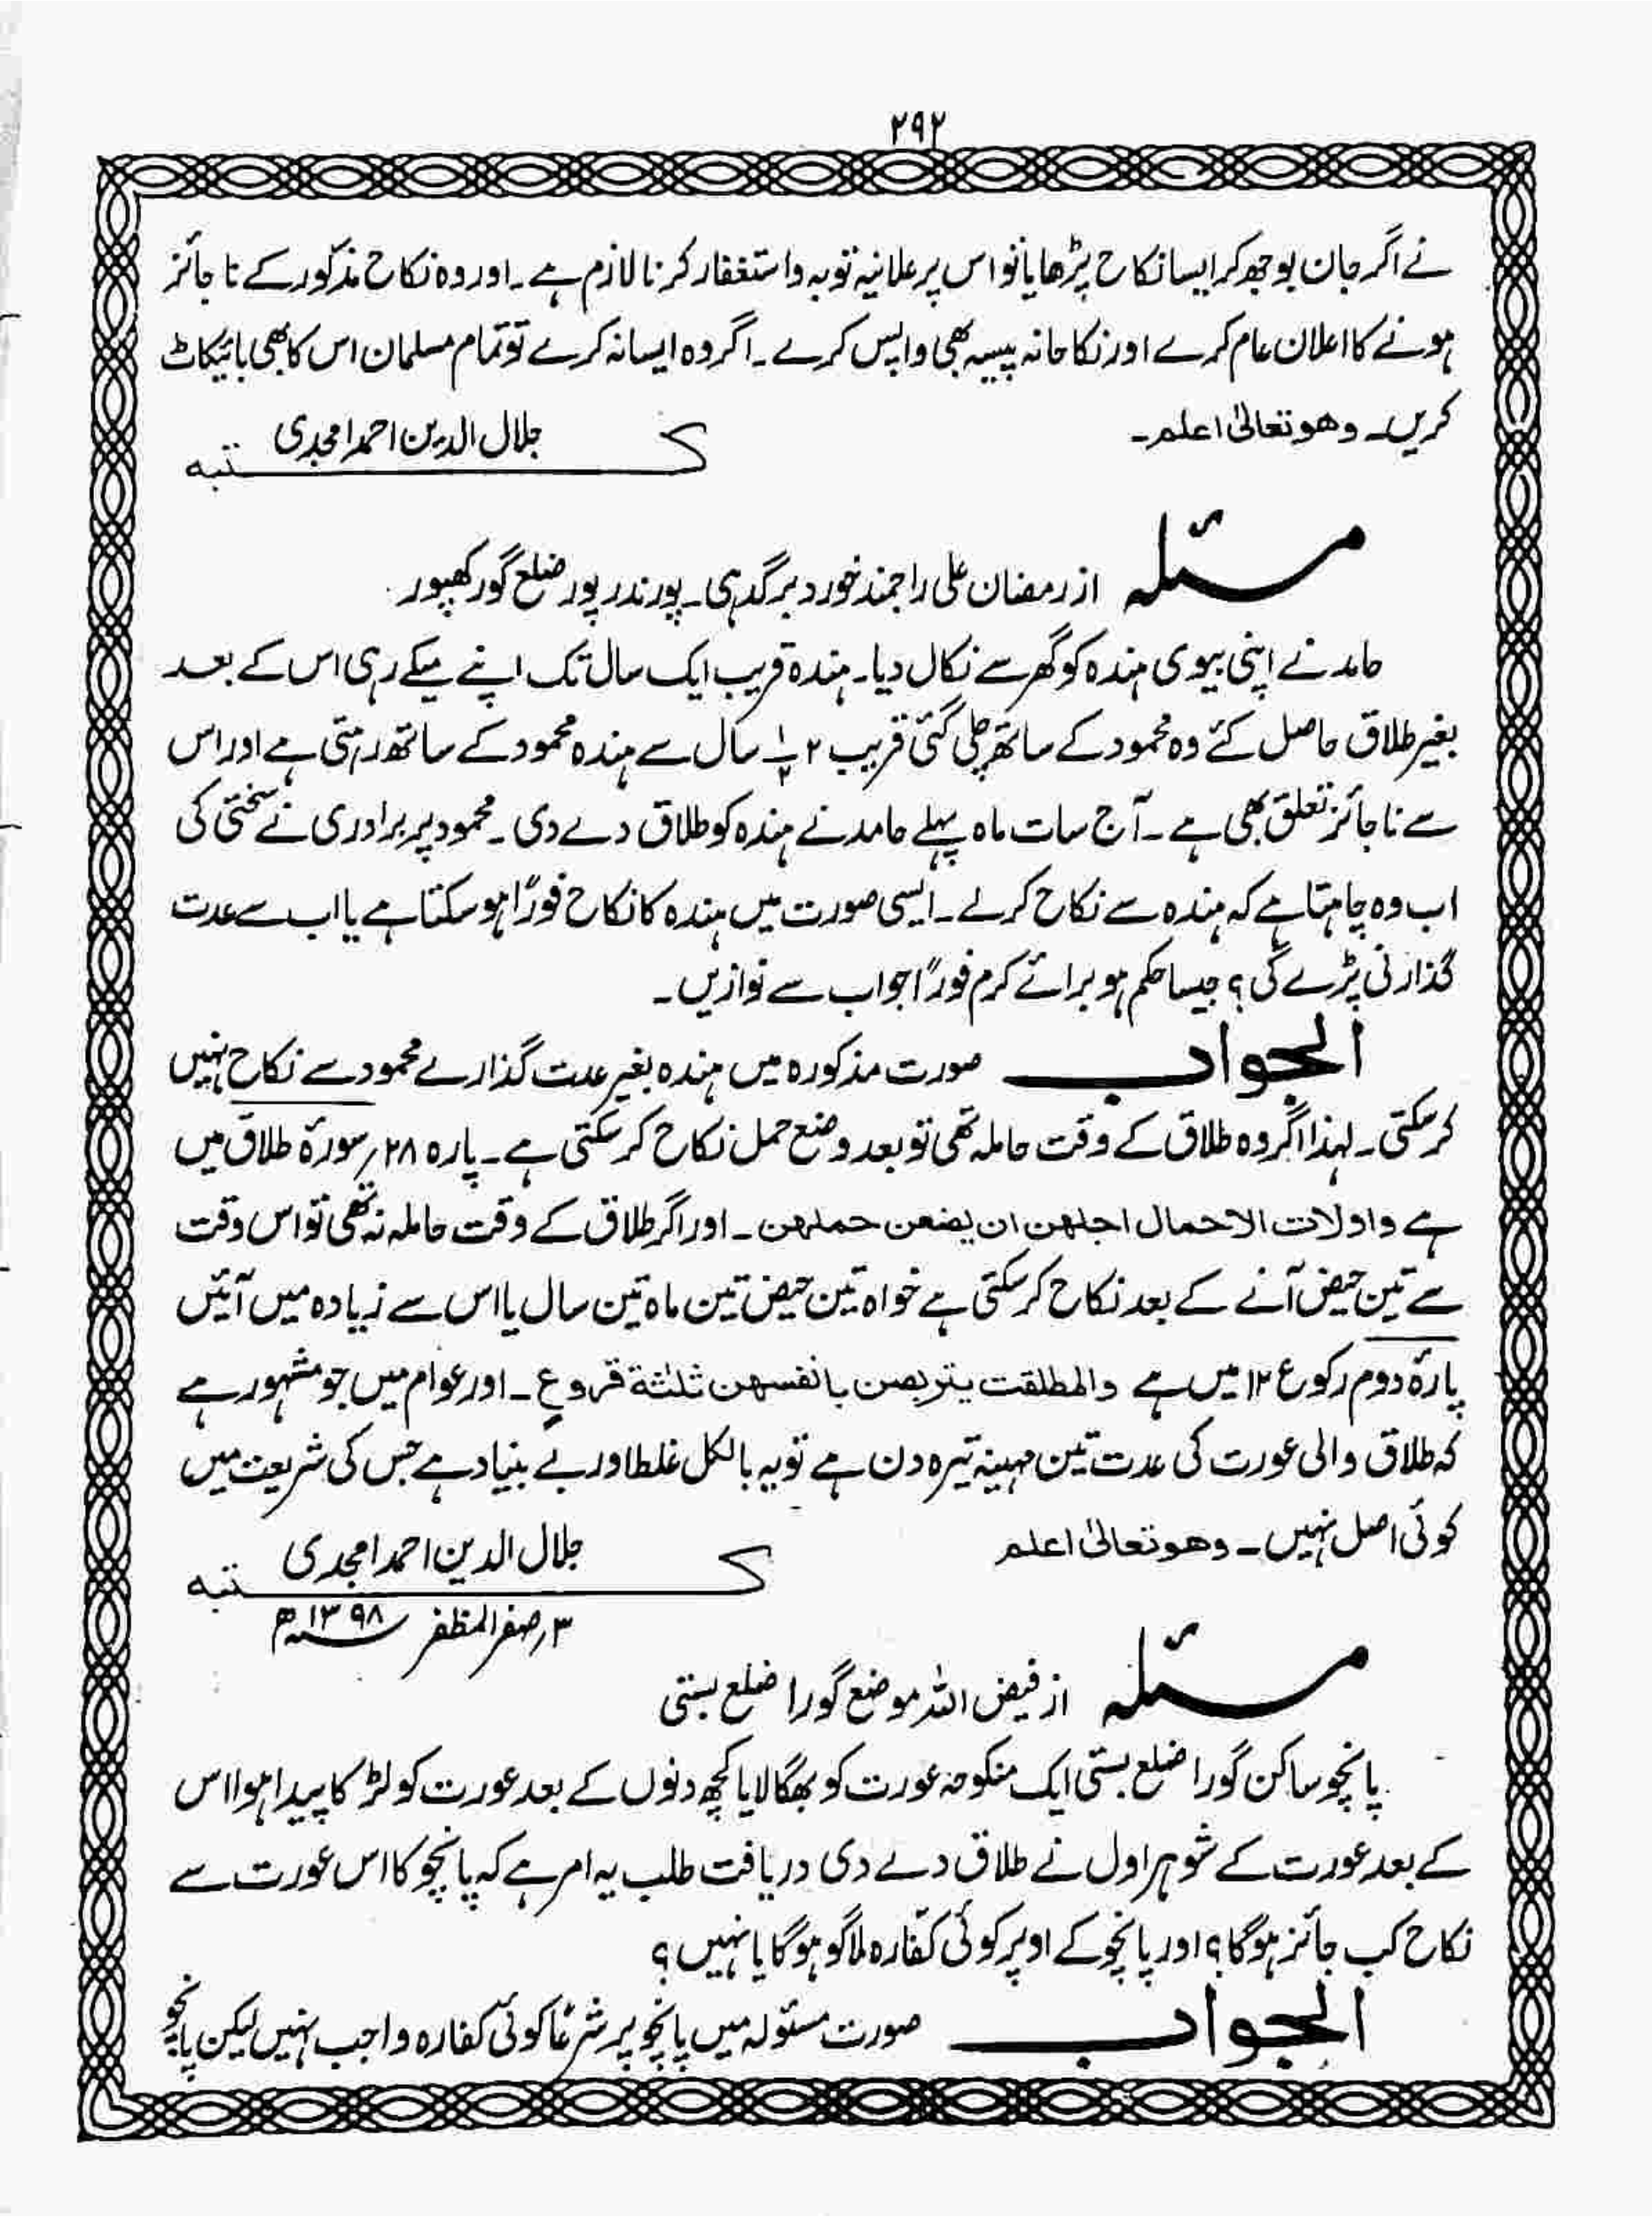 ۲۹۲
نے اگر جان بوجھ کر ایسا نکاح پڑھایا تو اس پر علانیہ توبہ و استغفار کرنا لازم ہے۔ اور وہ نکاح مذکور کے ناجائز
ہونے کا اعلان عام کرے اور نکاحانہ پیسہ بھی واپس کرے۔ اگر وہ ایسا نہ کرے تو تمام مسلمان اس کا بھی بائیکاٹ
کریں۔ وھو تعالیٰ اعلم۔
جلال الدین احمد امجدی
کتبہ
مسئلہ از رمضان علی راجمند خورد برگدہی۔ پورندر پور ضلع گورکھپور
حامد نے اپنی بیوی ہندہ کو گھر سے نکال دیا۔ ہندہ قریب ایک سال تک اپنے میکے رہی اس کے بعد
بغیر طلاق حاصل کئے وہ محمود کے ساتھ چلی گئی قریب ۲ ۱/۲ سال سے ہندہ محمود کے ساتھ رہتی ہے اور اس
سے ناجائز تعلق بھی ہے۔ آج سات ماہ پہلے حامد نے ہندہ کو طلاق دے دی۔ محمود پر برادری نے سختی کی
اب وہ چاہتا ہے کہ ہندہ سے نکاح کرلے۔ ایسی صورت میں ہندہ کا نکاح فوراً ہو سکتا ہے یا اب سے عدت
گذارنی پڑے گی؟ جیسا حکم ہو برائے کرم فوراً جواب سے نوازیں۔
الجواب صورت مذکورہ میں ہندہ بغیر عدت گذارے محمود سے نکاح نہیں
کرسکتی۔ لہذا اگر وہ طلاق کے وقت حاملہ تھی تو بعد وضع حمل نکاح کرسکتی ہے۔ پارہ ۲۸؍ سورۂ طلاق میں
ہے واولات الاحمال اجلھن ان یضعن حملھن۔ اور اگر طلاق کے وقت حاملہ نہ تھی تو اس وقت
سے تین حیض آنے کے بعد نکاح کرسکتی ہے خواہ تین حیض تین ماہ تین سال یا اس سے زیادہ میں آئیں
پارۂ دوم رکوع ۱۲ میں ہے والمطلقت یتربصن بانفسھن ثلثة قروءٍ۔ اور عوام میں جو مشہور ہے
کہ طلاق والی عورت کی عدت تین مہینہ تیرہ دن ہے تو یہ بالکل غلط اور بے بنیاد ہے جس کی شریعت میں
کوئی اصل نہیں۔ وھو تعالیٰ اعلم
جلال الدین احمد امجدی
کتبہ
۳؍ صفر المظفر ۱۳۹۸ھ
مسئلہ از فیض اللہ موضع گورا ضلع بستی
پانچو ساکن گورا ضلع بستی ایک منکوحہ عورت کو بھگا لایا کچھ دنوں کے بعد عورت کو لڑکا پیدا ہوا اس
کے بعد عورت کے شوہر اول نے طلاق دے دی دریافت طلب یہ امر ہے کہ پانچو کا اس عورت سے
نکاح کب جائز ہوگا؟ اور پانچو کے اوپر کوئی کفارہ لاگو ہوگا یا نہیں؟
الجواب صورت مسئولہ میں پانچو پر شرعاً کوئی کفارہ واجب نہیں لیکن پانچو